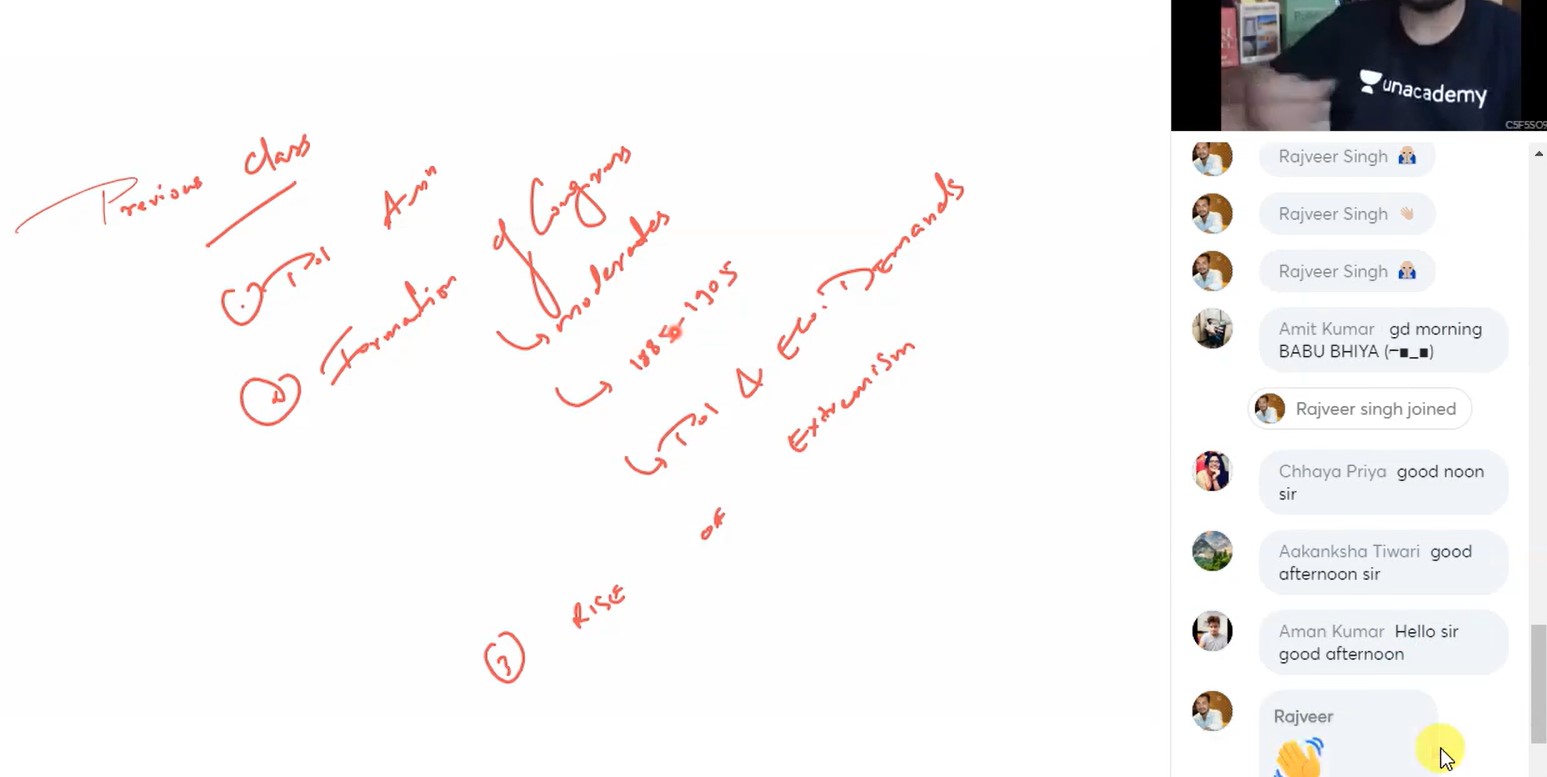 Previous class
Pol Assn
② Formation of Congress
moderates
1885-1905
Pol & Eco. Demands
③ RISE OF Extremism
unacademy
C5F5SO9
Rajveer Singh 🙏🏼
Rajveer Singh 👋🏼
Rajveer Singh 🙏🏼
Amit Kumar gd morning
BABU BHIYA (⌐■_■)
Rajveer singh joined
Chhaya Priya good noon
sir
Aakanksha Tiwari good
afternoon sir
Aman Kumar Hello sir
good afternoon
Rajveer